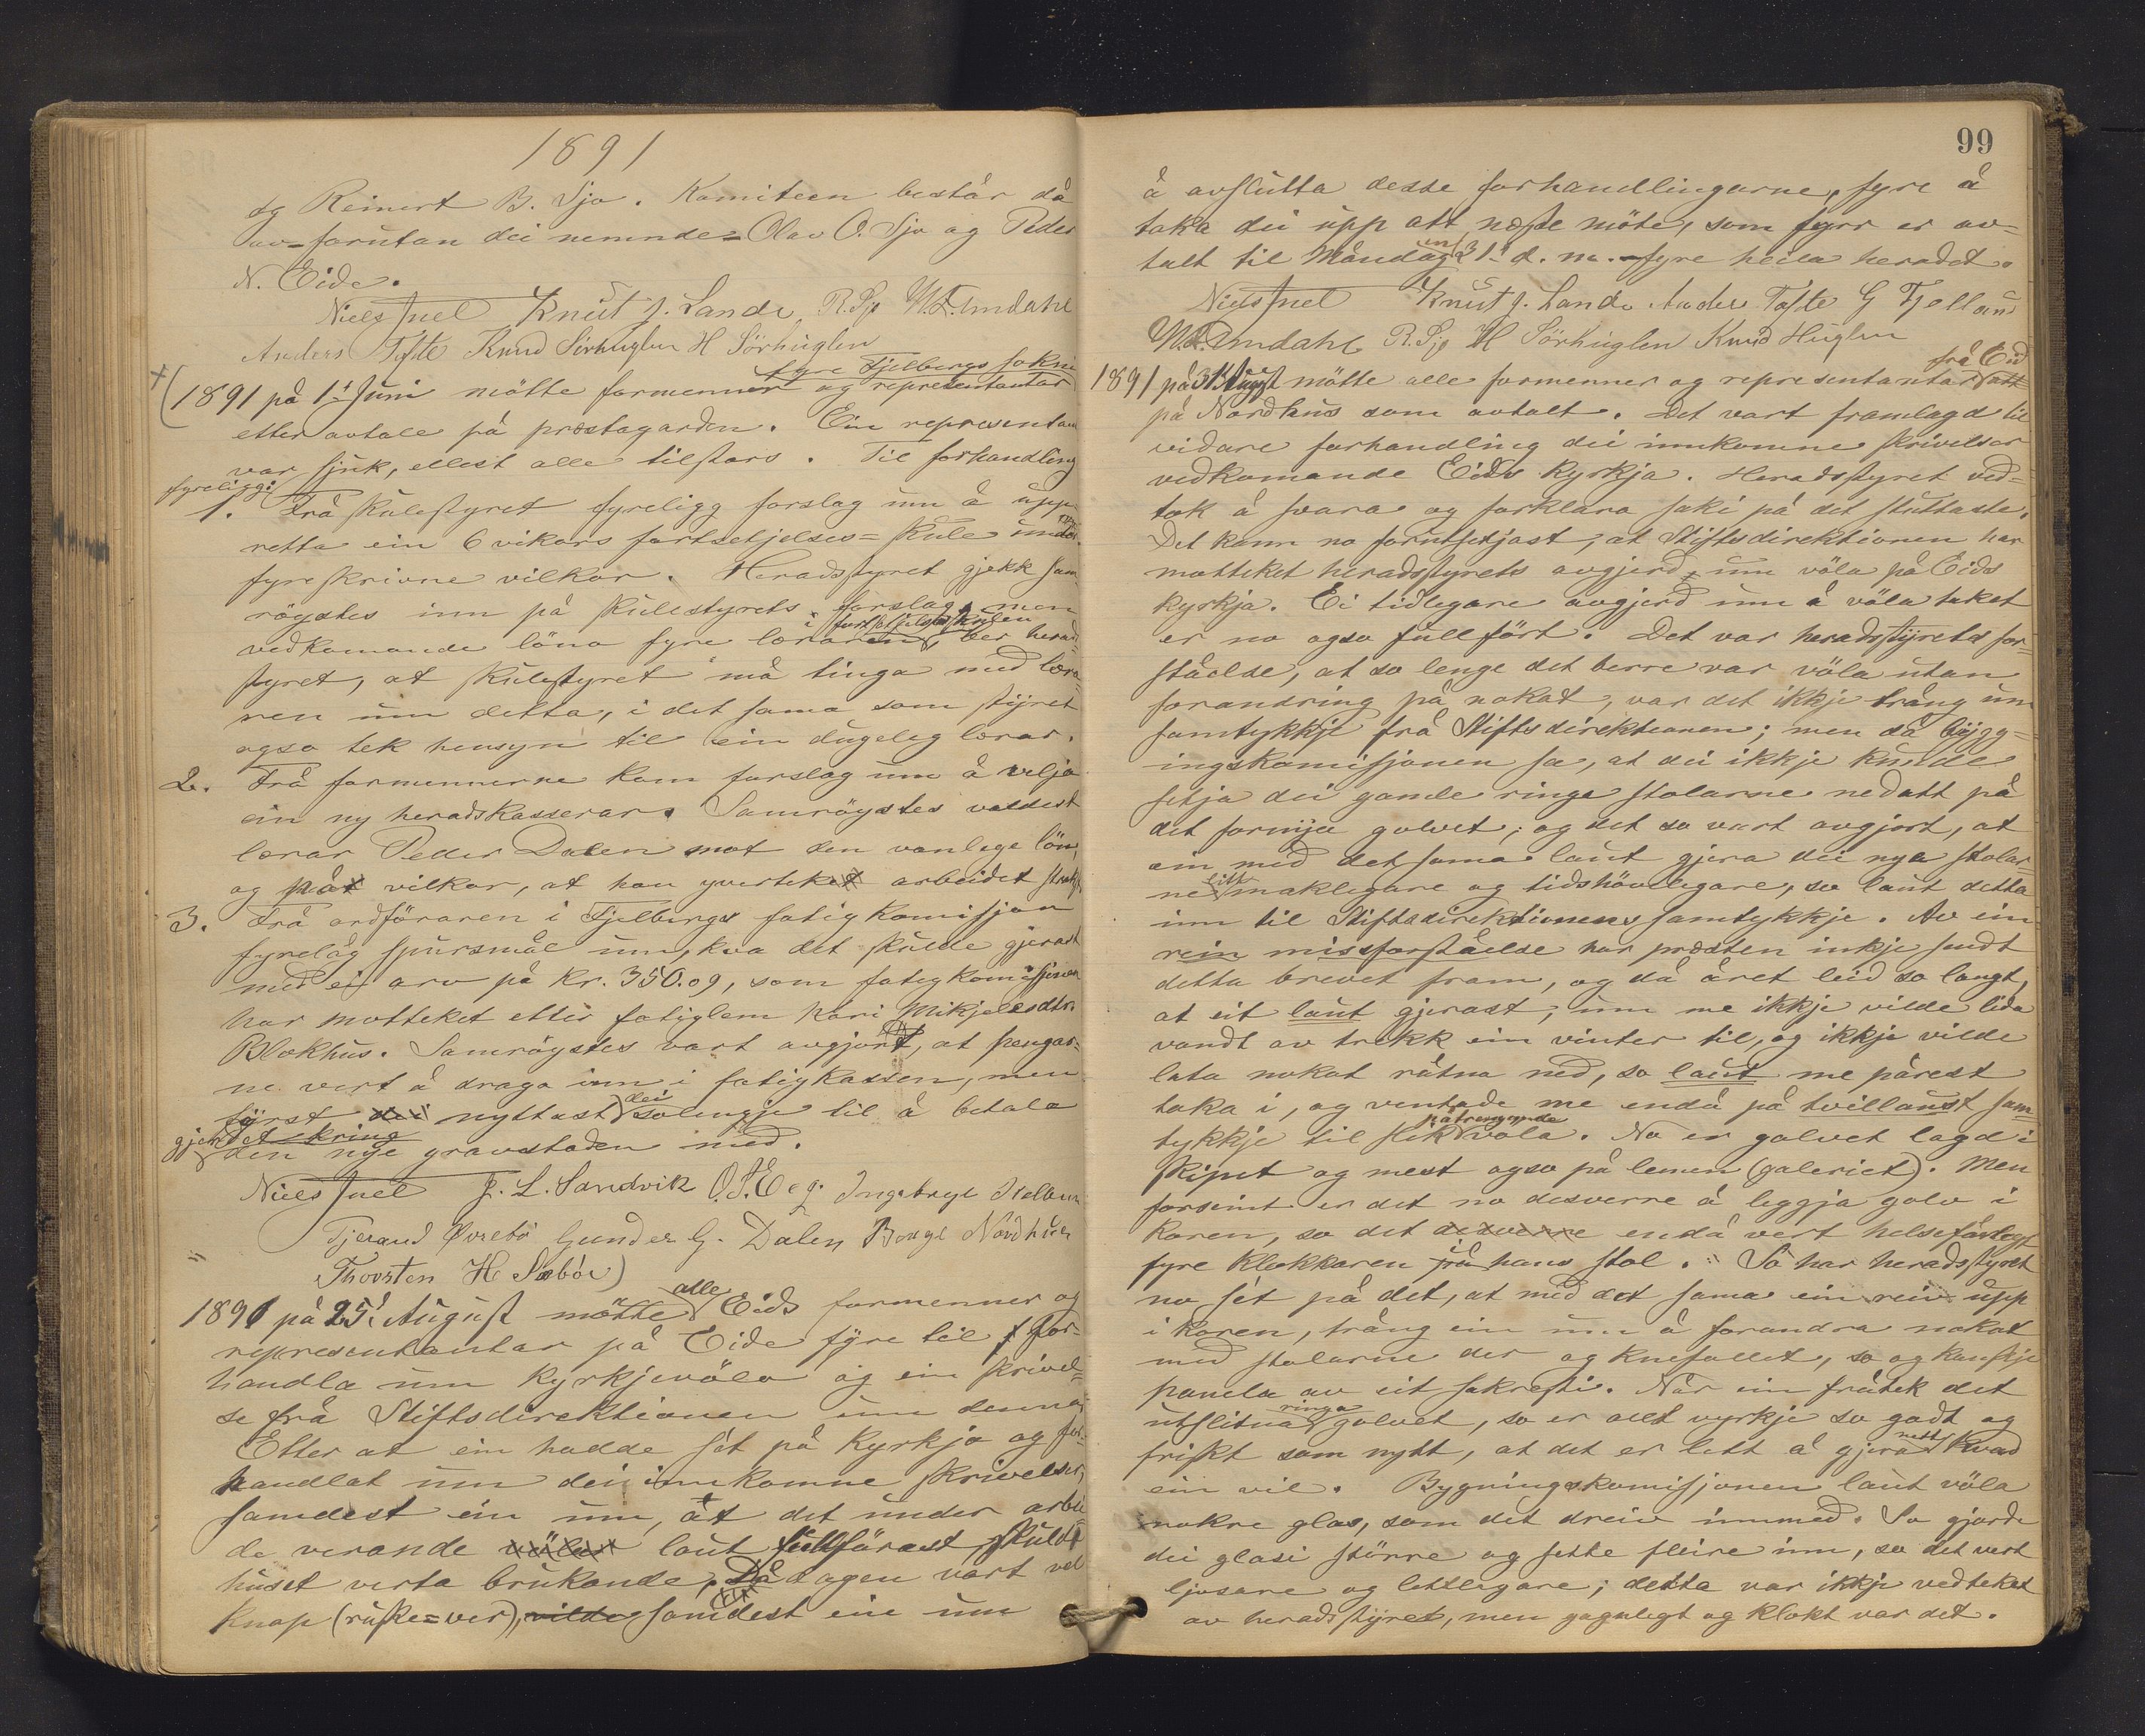 1891
og Reinert B. Sjo. Komiteen består då
av forutan dei nemnde = Olav O. Sjo og Peder
N. Eide.
Niels Juel Knut J. Lande R. Sjo W. L. Undahl
Anders Tofte Knud Sörhuglen H Sörhuglen
fyre Fjelbergs sokni
1891 på 1ste Juni mötte formenner og representantar
etter avtale på præstagarden. Ein representant
var sjuk, ellest alle tilstass. Til forhandling
fyreligg:
1. Frå skulestyret fyreligg forslag um å upp-
retta ein 6 vikors fortsetjelses = skule under
fyreskrivne vilkor. Heradsstyret gjekk sam-
röystes inn på skulestyrets forslag, men
i fortsetjelsesskulen
vedkomande löna fyre læraren, ber herads-
styret, at skulestyret må tinga med læra-
ren um detta, i det sama som styret
ogso tek hensyn til ein dugeleg lærar.
2. Frå formennerne kom forslag um å velja
ein ny heradskasserar. Samröystes valdest
lærar Peder Dalen mot den vanlege lön,
og på vilkor, at han yvertek arbeidet straks.
3. Frå ordföraren i Fjelbergs fatigkomisjon
fyrelåg spursmål um, kva det skulde gjerast
med ei arv på Kr. 350.09, som fatigkomisjonen
har motteket etter fatiglem Kari Mikjelsdtr.
Blokhus. Samröystes vart avgjort, at pengar-
ne vert å draga inn i fatigkassen, men
fyrst nyttast dei solengje til å betala
gjerdet kring
den nye gravstaden med.
Niels Juel J. L. Sandvik O. S. Eeg. Ingebrigt
Tjerand Øvrebö Gunder G. Dalen Børge Nordhus
Thorsten H Sæbøe)
1891 på 25de August mötte alle Eids formenner og
representantar på Eide fyre til for-
handla um Kyrkjevöla og ein skrivel-
se frå Stiftsdirektionen um denna.
Etter at ein hadde set på Kyrkja og for-
handlat um dei innkomne skrivelser,
samdest ein um, at det under arbei-
de verande laut fullförast, skulde
huset verta brukande. Då dagen vart vel
knap (ruske=ver), samdest ein um

99
å avslutta desse forhandlingarne, fyre å
taka dei upp att næste möte, som fyrr er av-
talt til Måndag den 31te d. m. fyre heila heradet.
Niels Juel Knut J. Lande Anders Tofte G Tjelland
W. L. Undahl R. Sjo H Sörhuglen Knud Huglen
frå Eid
1891 på 31 August mötte alle formenner og representantar att
på Nordhus som avtalt. Det vart framlagd til
vidare forhandling dei innkomne skrivelser
vedkomande Eids Kyrkja. Heradsstyret ved-
tok å svara og forklara saki på det stuttaste.
Det kann no forutsetjast, at Stiftsdirektionen har
motteket heradsstyrets avgjerd um völa på Eids
kyrkja. Ei tidlegare avgjerd um å völa taket
er no ogso fullfört. Det var heradsstyrets for-
ståelse, at so lenge det berre var völa utan
forandring på nokot, var det ikkje trång um
samtykkje frå Stiftsdirektionen; men då bygg-
ingskomisjonen sa, at dei ikkje kunde
setja dei gamle ringe stolarne nedatt på
det fornya golvet, og det so vart avgjort, at
ein med det sama laut gjera dei nya stolar-
ne litt maklegare og tidshöveligare, so laut detta
inn til Stiftsdirektionens samtykkje. Av ein
rein missforståelse har præsten inkje sendt
detta brevet fram, og då året leid so langt,
at eit laut gjerast, um me ikkje vilde lida
vondt av trekk ein vinter til, og ikkje vilde
lata nokot råtna ned, so laut me pårest
taka i, og ventade me endå på tvillaust sam-
tykkje til slik påtrengande völa. No er golvet lagd i
skipet og mest ogso på lemen (galeriet). Men
forseint er det no desverre å leggja golv i
koren, so det endå vert helsefårlegt
fyre Klokkaren på hans stol. Så har heradsstyret
no sét på det, at med det sama ein reiv upp
i koren, trång ein um å forandra nokot
med stolarne der og knefallet, so og kanskje
panela av eit sakresti. Når ein fråtek det
utslitna ringa golvet, so er alt vyrkje so godt og
friskt som nytt, at det er lett å gjera nett kvad
ein vil. Bygningskomisjonen laut völa
nokre glas, som det dreiv innmed. So gjorde
dei glasi större og sette fleire inn, so det vert
ljosare og lettlegare; detta var ikkje vedteket
av heradsstyret, men gagnlegt og klokt var det.